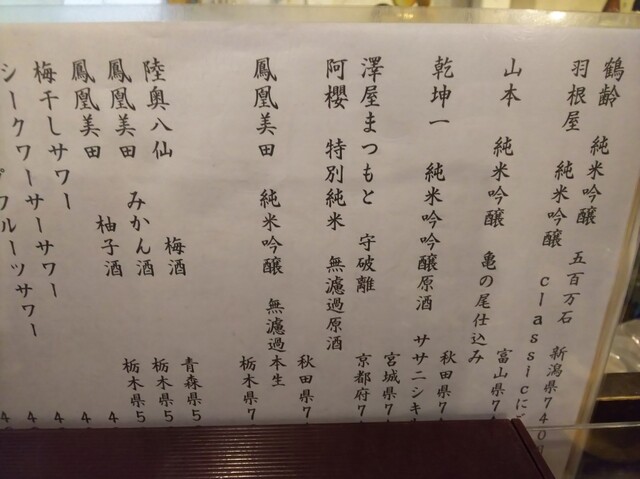 鶴齢 純米吟醸 五百万石 新潟県740円
羽根屋 純米吟醸 classicに 富山県7
山本 純米吟醸 亀の尾仕込み 秋田県7
乾坤一 純米吟醸原酒 ササニシキ 宮城県7
澤屋まつもと 守破離 京都府7
阿櫻 特別純米 無濾過原酒 秋田県7
鳳凰美田 純米吟醸 無濾過本生 栃木県7
陸奥八仙 梅酒 青森県5
鳳凰美田 みかん酒 栃木県5
鳳凰美田 柚子酒 栃木県5
梅干しサワー 4
シークワーサーサワー 4
フルーツサワー 4